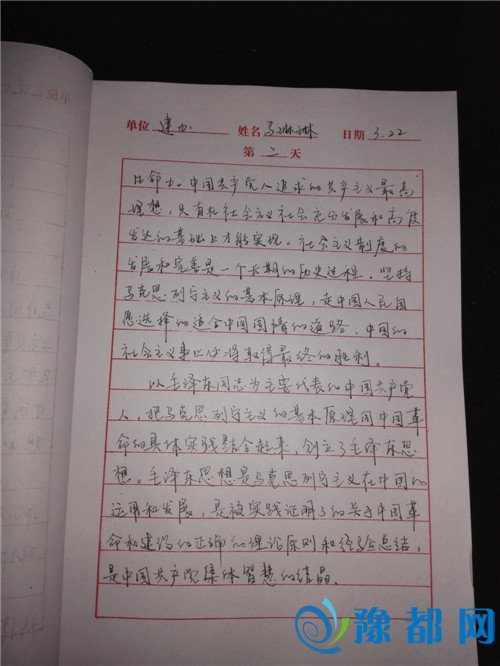 单位 建办 姓名 马淋淋 日期 3.22
第 二 天
生命力。中国共产党人追求的共产主义最高
理想，只有在社会主义社会充分发展和高度
发达的基础上才能实现。社会主义制度的
发展和完善是一个长期的历史过程。坚持
马克思列宁主义的基本原理，走中国人民自
愿选择的适合中国国情的道路，中国的
社会主义事业必将取得最终的胜利。
以毛泽东同志为主要代表的中国共产党
人，把马克思列宁主义的基本原理同中国革
命的具体实践结合起来，创立了毛泽东思
想。毛泽东思想是马克思列宁主义在中国的
运用和发展，是被实践证明了的关于中国革
命和建设的正确的理论原则和经验总结，
是中国共产党集体智慧的结晶。
豫都网